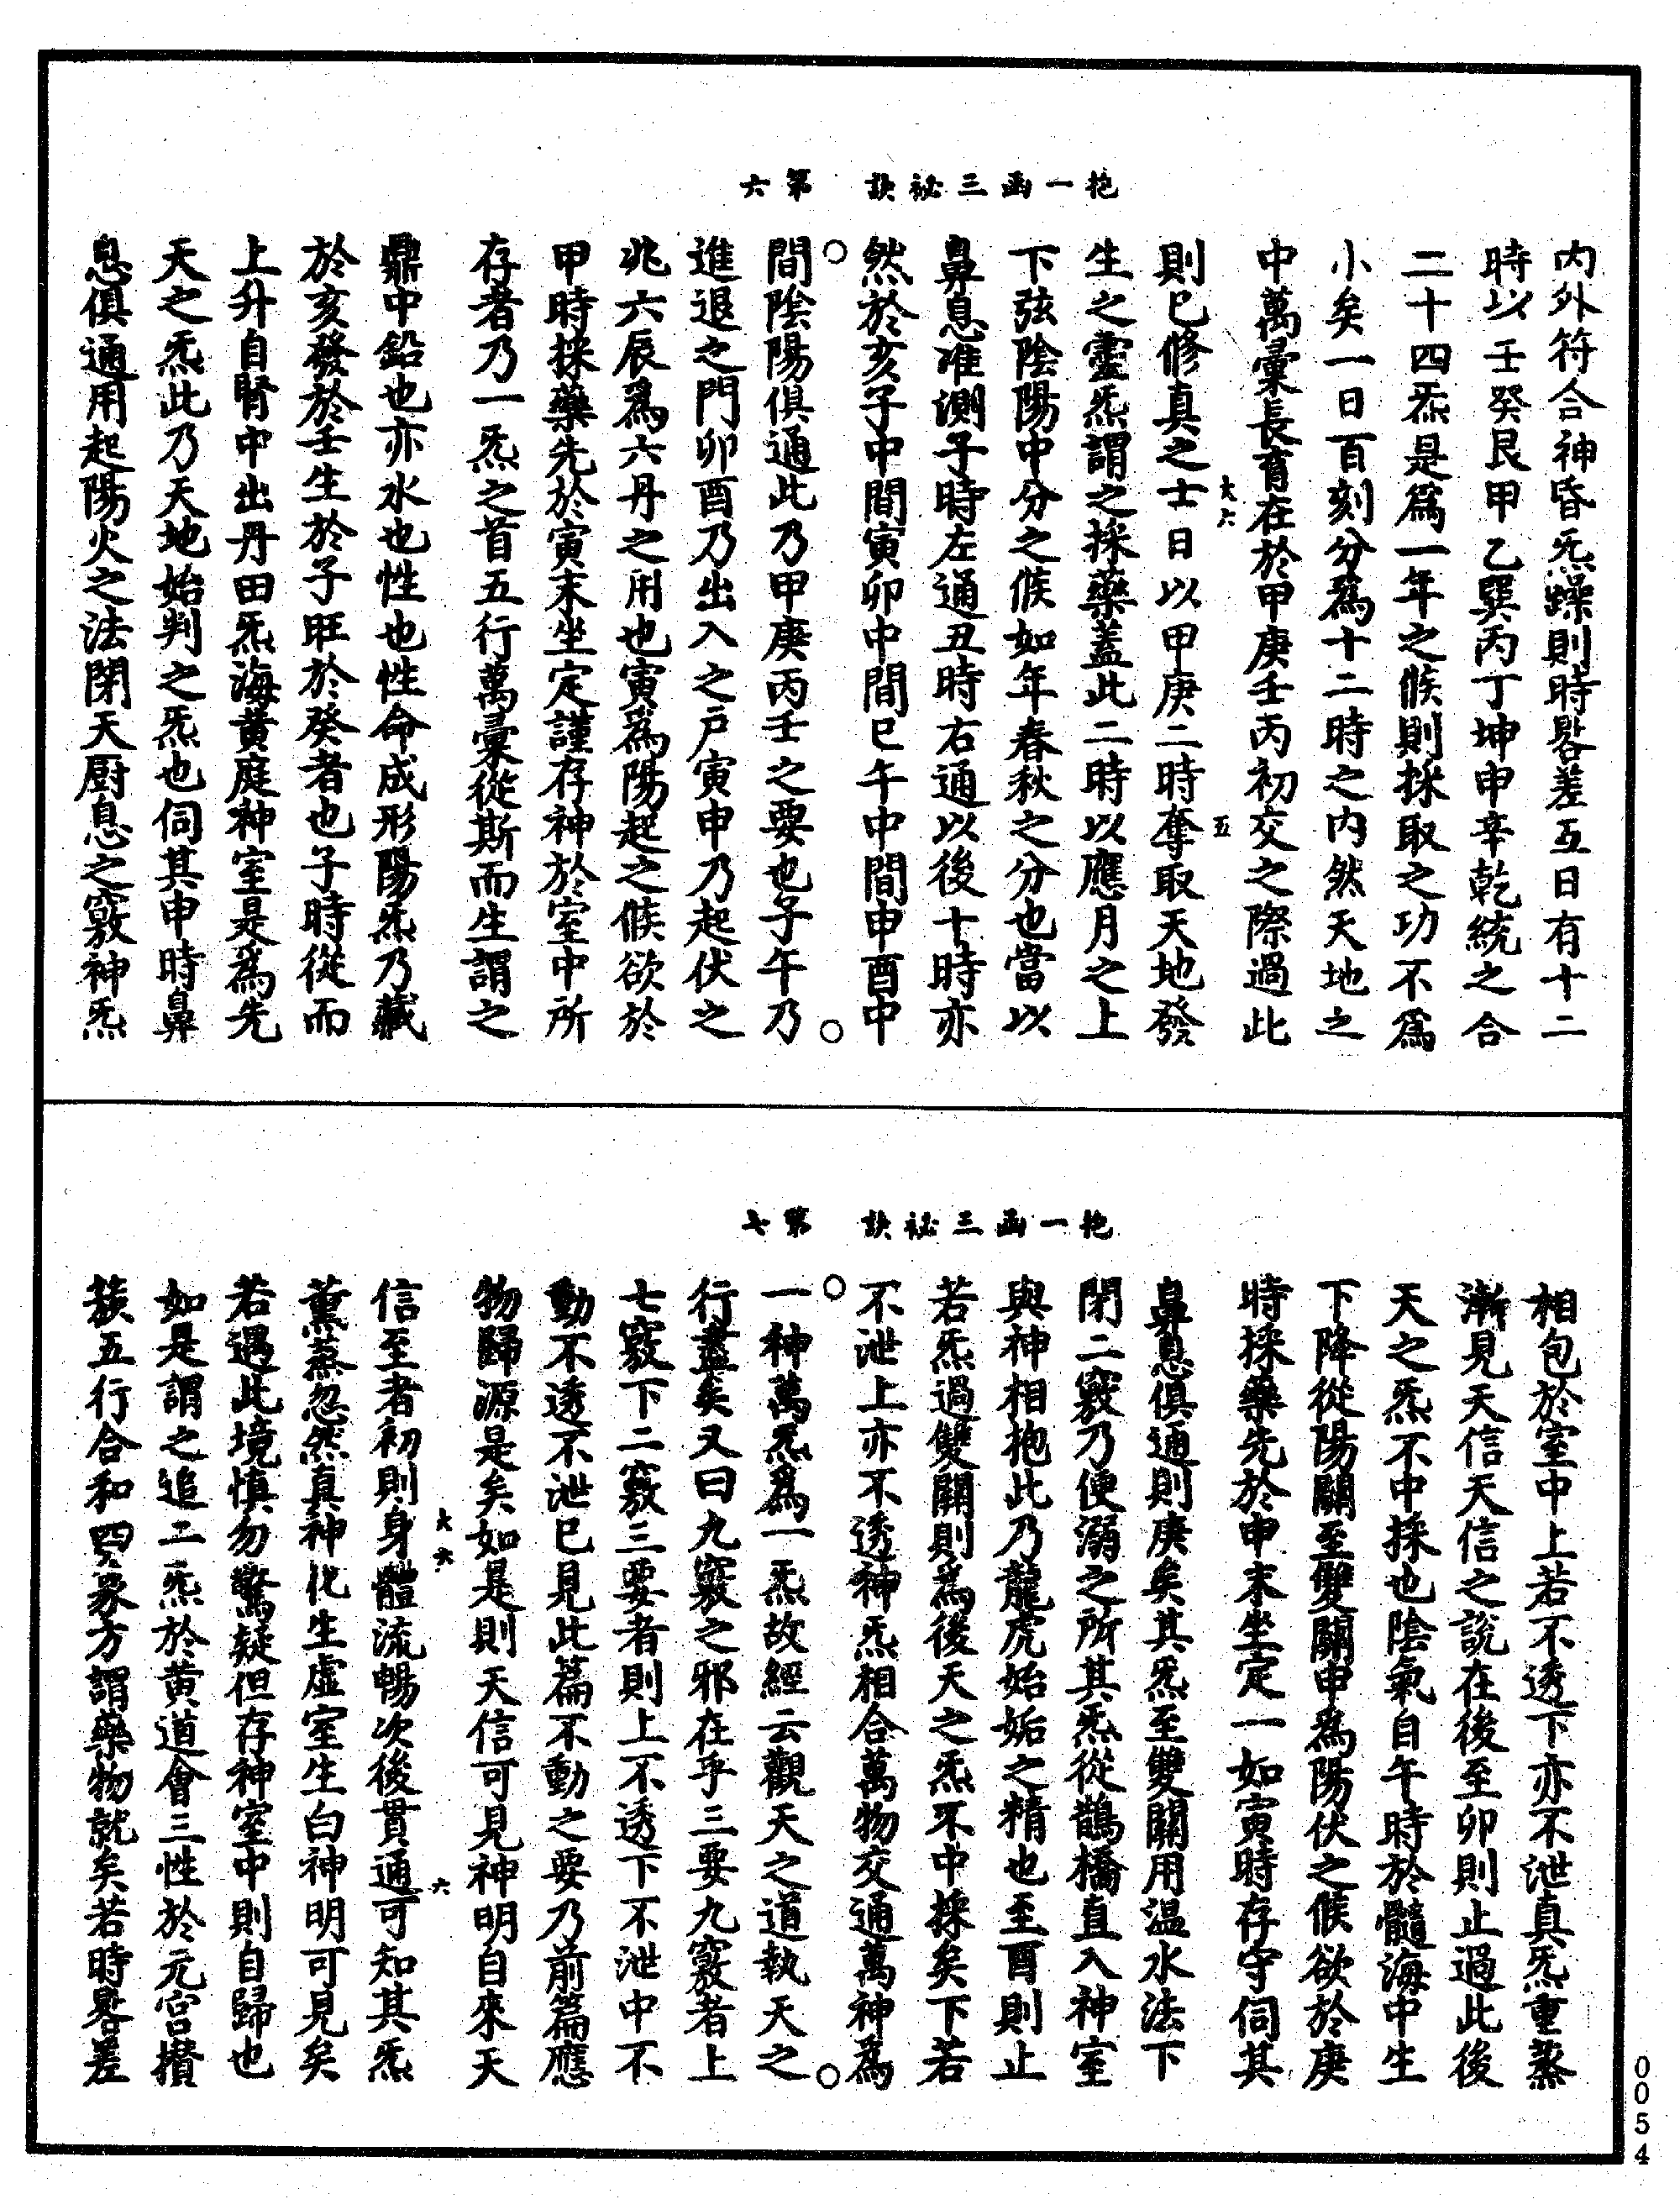 抱一函三祕訣 第六
內外符合神昏炁躁則時晷差互日有十二
時以壬癸艮甲乙巽丙丁坤申辛乾統之合
二十四炁是爲一年之候則採取之功不爲
小矣一日百刻分爲十二時之內然天地之
中萬彙長育在於甲庚壬丙初交之際過此
則已修真之士日以甲庚二時奪取天地發
大六 五
生之靈炁謂之採藥蓋此二時以應月之上
下弦陰陽中分之候如年春秋之分也當以
鼻息准測子時左通丑時右通以後十時亦
然於亥子中間寅卯中間巳午中間申酉中
間陰陽俱通此乃甲庚丙壬之要也子午乃
進退之門卯酉乃出入之戶寅申乃起伏之
兆六辰爲六丹之用也寅爲陽起之候欲於
甲時採藥先於寅末坐定謹存神於室中所
存者乃一炁之首五行萬彙從斯而生謂之
鼎中鉛也亦水也性也性命成形陽炁乃藏
於亥發於壬生於子旺於癸者也子時從而
上升自腎中出丹田炁海黃庭神室是爲先
天之炁此乃天地始判之炁也伺其申時鼻
息俱通用起陽火之法閉天厨息之竅神炁
抱一函三祕訣 第七
相包於室中上若不透下亦不泄真炁重蒸
漸見天信天信之說在後至卯則止過此後
天之炁不中採也陰氣自午時於髓海中生
下降從陽關至雙關申爲陽伏之候欲於庚
時採藥先於申末坐定一如寅時存守伺其
鼻息俱通則庚矣其炁至雙關用溫水法下
閉二竅乃便溺之所其炁從鵲橋直入神室
與神相抱此乃龍虎始姤之精也至酉則止
若炁過雙關則爲後天之炁不中採矣下若
不泄上亦不透神炁相合萬物交通萬神爲
一神萬炁爲一炁故經云觀天之道執天之
行盡矣又曰九竅之邪在乎三要九竅者上
七竅下二竅三要者則上不透下不泄中不
動不透不泄已見此篇不動之要乃前篇應
物歸源是矣如是則天信可見神明自來天
信至者初則身體流暢次後貫通可知其炁
大六 六
薰蒸忽然真神化生虛室生白神明可見矣
若遇此境慎勿驚疑但存神室中則自歸也
如是謂之追二炁於黃道會三性於元宮攢
蔟五行合和四象方謂藥物就矣若時晷差
0054